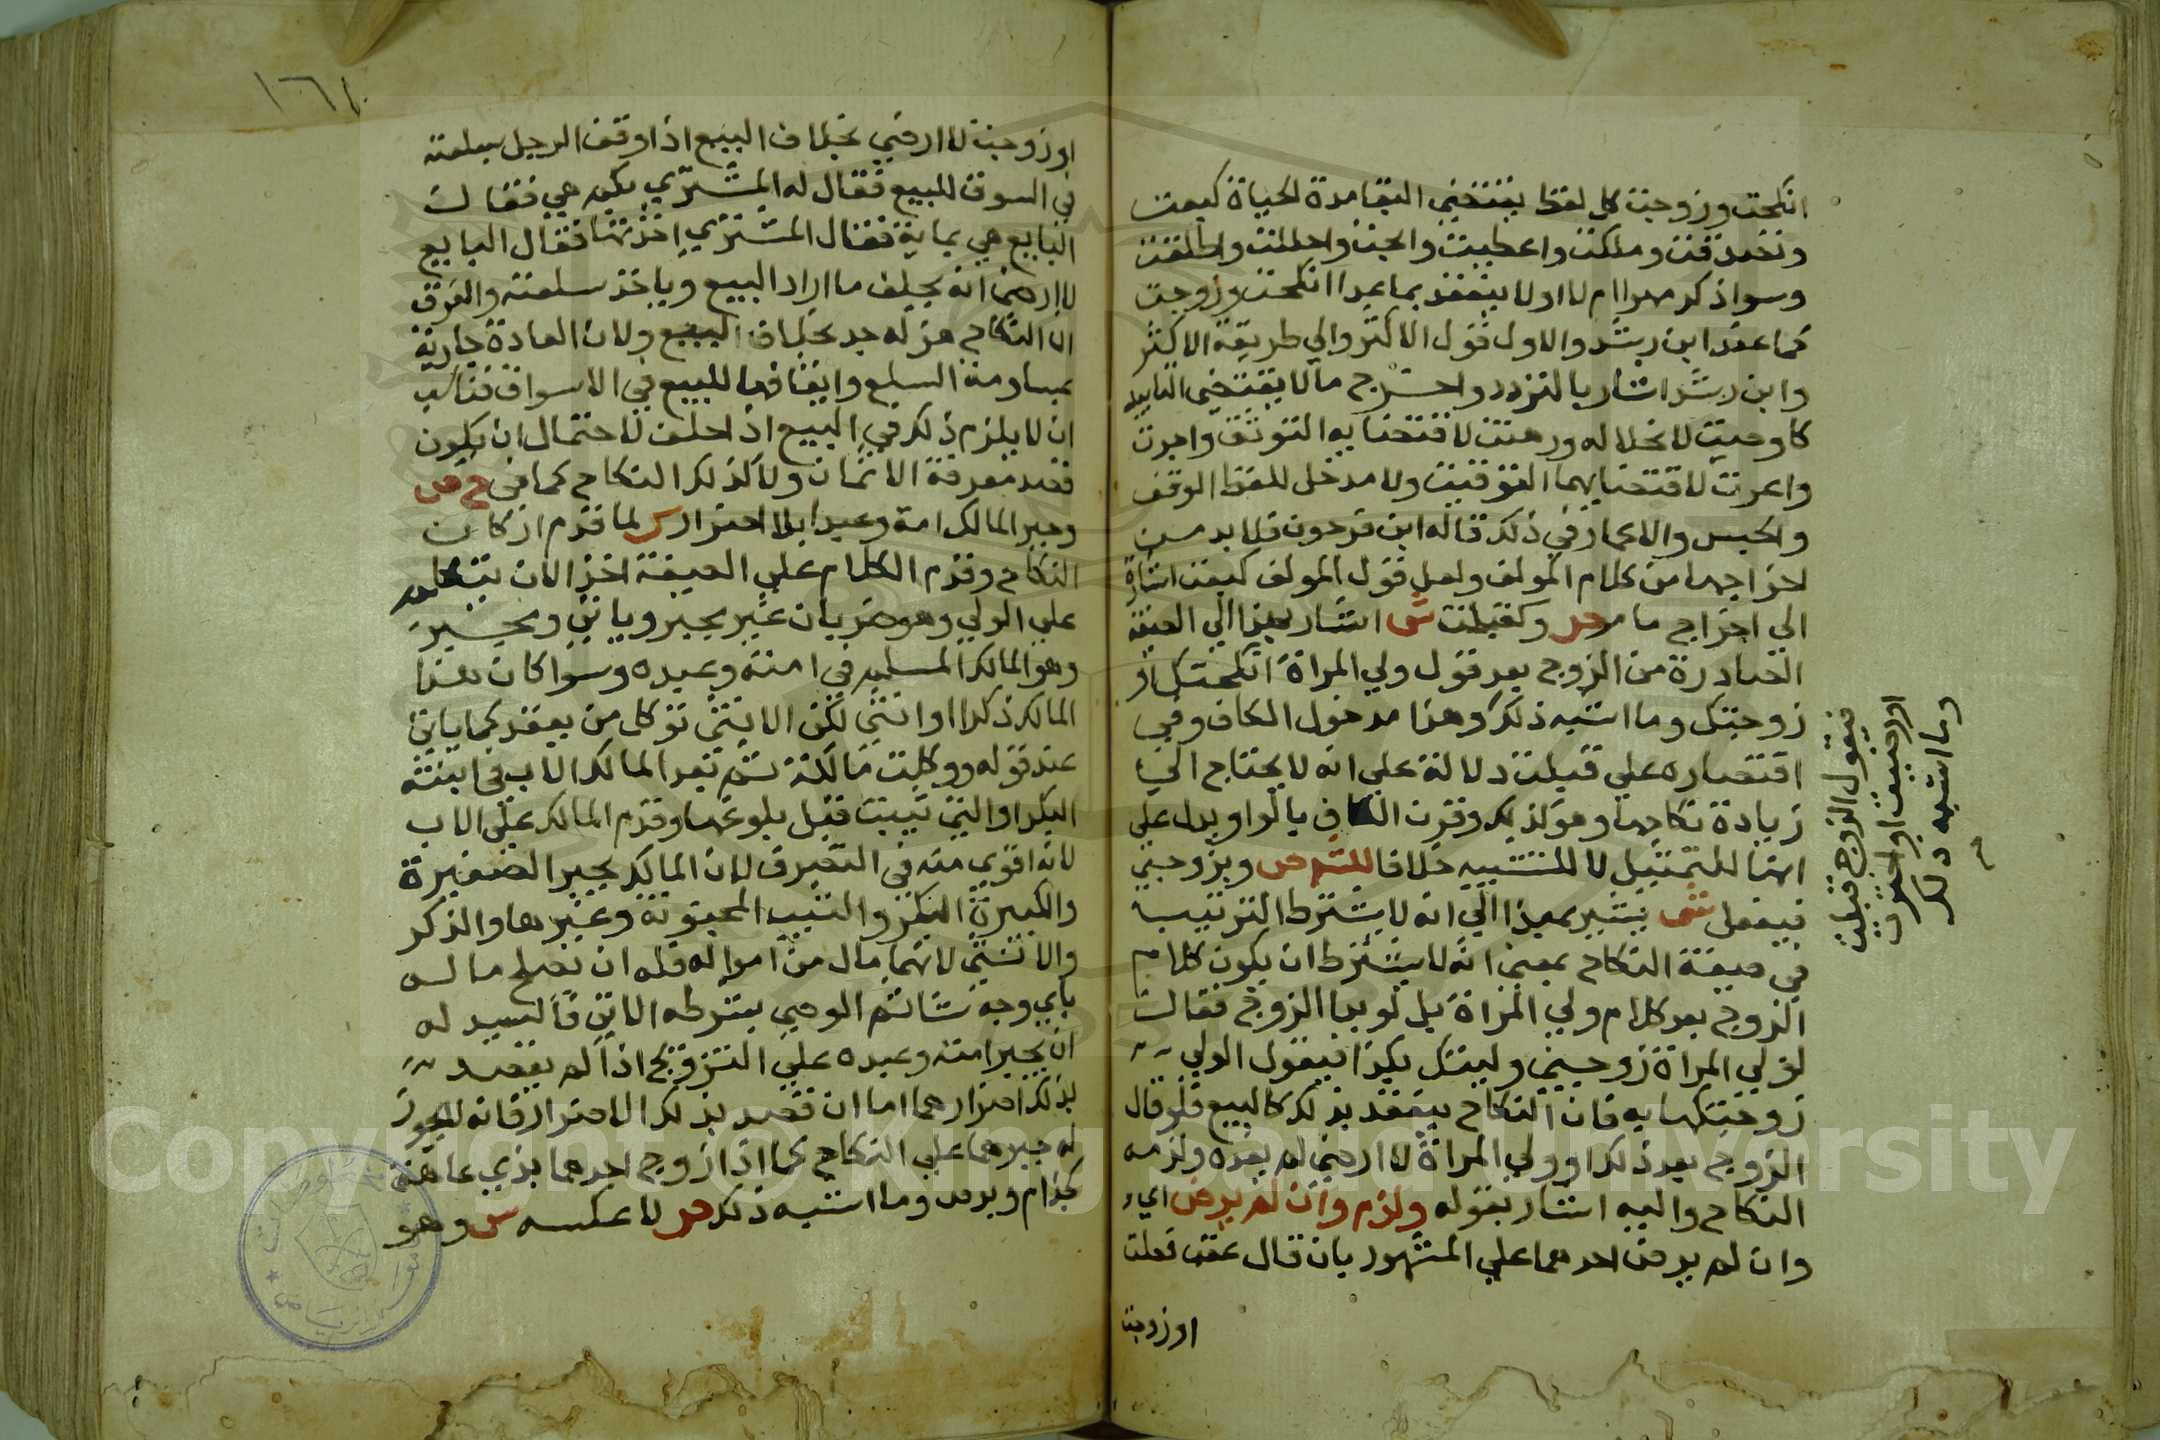 انكحت وزوجت كل لفظ يقتضي البقا مدة الحياة كبعت
وتصدقت وملكت واعطيت وابحت واحللت واطلقت
وسوا ذكر مهرا ام لا او لا ينعقد بما عدا انكحت وزوجت
كما عند ابن رشد والاول قول الاكثر والي طريقة الاكثر
وابن رشد اشار بالتردد واخرج مالا يقتضي التابيد
كاوصيت لانحلاله ورهنت لاقتضايه التوثق واجرت
واعرت لاقتضايهما التوقيت ولا مدخل للفظ الوقف
والحبس والاعمار في ذلك قاله ابن فرحون فلا بد من
اخراجها من كلام المولف ولعل قول المولف كبعت اشارة
الي اخراج ما مر ص وكقبلت ش اشار بهذا الي الصيغة
الصادرة من الزوج بعد قول ولي المراة انكحتك او
زوجتك وما اشبه ذلك وهذا مدخول الكاف وفي
اقتصاره علي قبلت دلالة علي انه لا يحتاج الي
زيادة نكاحها وهو كذلك وقرن الكاف بالواو يدل علي
انها للتمثيل لا للتشبيه خلافا للشم ص وبزوجني
فيفعل ش يشير بهذا الي انه لا يشترط الترتيب
في صيغة النكاح بمعني انه لا يشترط ان يكون كلام
الزوج بعد كلام ولي المراة بل لو بدا الزوج فقال
لولي المراة زوجني وليتك بكذا فيقول الولي
زوجتكها به فان النكاح ينعقد بذلك كالبيع فلو قال
الزوج بعد ذلك او ولي المراة لا ارضي لم يفده ولزمه
النكاح واليه اشار بقوله ولزم وان لم يرض اي
وان لم يرض احدهما علي المشهور بان قال عقب قبلت
او زوجت
فيقول الزوج قبلت
او رضيت او اخترت
وما اشبه ذلك
١٦١
او زوجت لا ارضي بخلاف البيع اذا وقف الرجل سلعته
في السوق للبيع فقال له المشتري بكم هي فقال
البايع هي بماية فقال المشتري اخذتها فقال البايع
لا ارضي انه يحلف ما اراد البيع وياخذ سلعته والفرق
ان النكاح هزله جد بخلاف البيع ولان العادة جارية
بمساومة السلع وايقافها للبيع في الاسواق فناسب
ان لا يلزم ذلك في البيع اذا حلف لاحتمال ان يكون
قصد معرفة الاثمان ولا كذلك النكاح كما في ح ص
وجبر المالك امة وعبدا بلا اضرار ش لما قدم اركان
النكاح وقدم الكلام علي الصيغة اخذ الان يتكلم
علي الولي وهو ضربان غير مجبر وياتي ومجبر
وهو المالك المسلم في امته وعبده وسوا كان هذا
المالك ذكرا او انثي لكن الانثي توكل من يعقد كما ياتي
عند قوله ووكلت مالكة ثم بعد المالك الاب في ابنته
البكر او التي ثيبت قبل بلوغها وقدم المالك علي الاب
لانه اقوي منه في التصرف لان المالك يجبر الصغيرة
والكبيرة البكر والثيب المجنونة وغيرها والذكر
والانثي لانهما مال من امواله فله ان يصلح ماله
باي وجه شا ثم الوصي بشرطه الاتي فالسيد له
ان يجبر امته وعبده علي التزويج اذا لم يقصد
بذلك اضرارهما اما ان قصد بذلك الاضرار فانه لا يجوز
له جبرهما علي النكاح كما اذا زوج احدهما بذي عاهة
كجذام وبرص وما اشبه ذلك ص لا عكسه ش وهو
Copyright © King Saud University